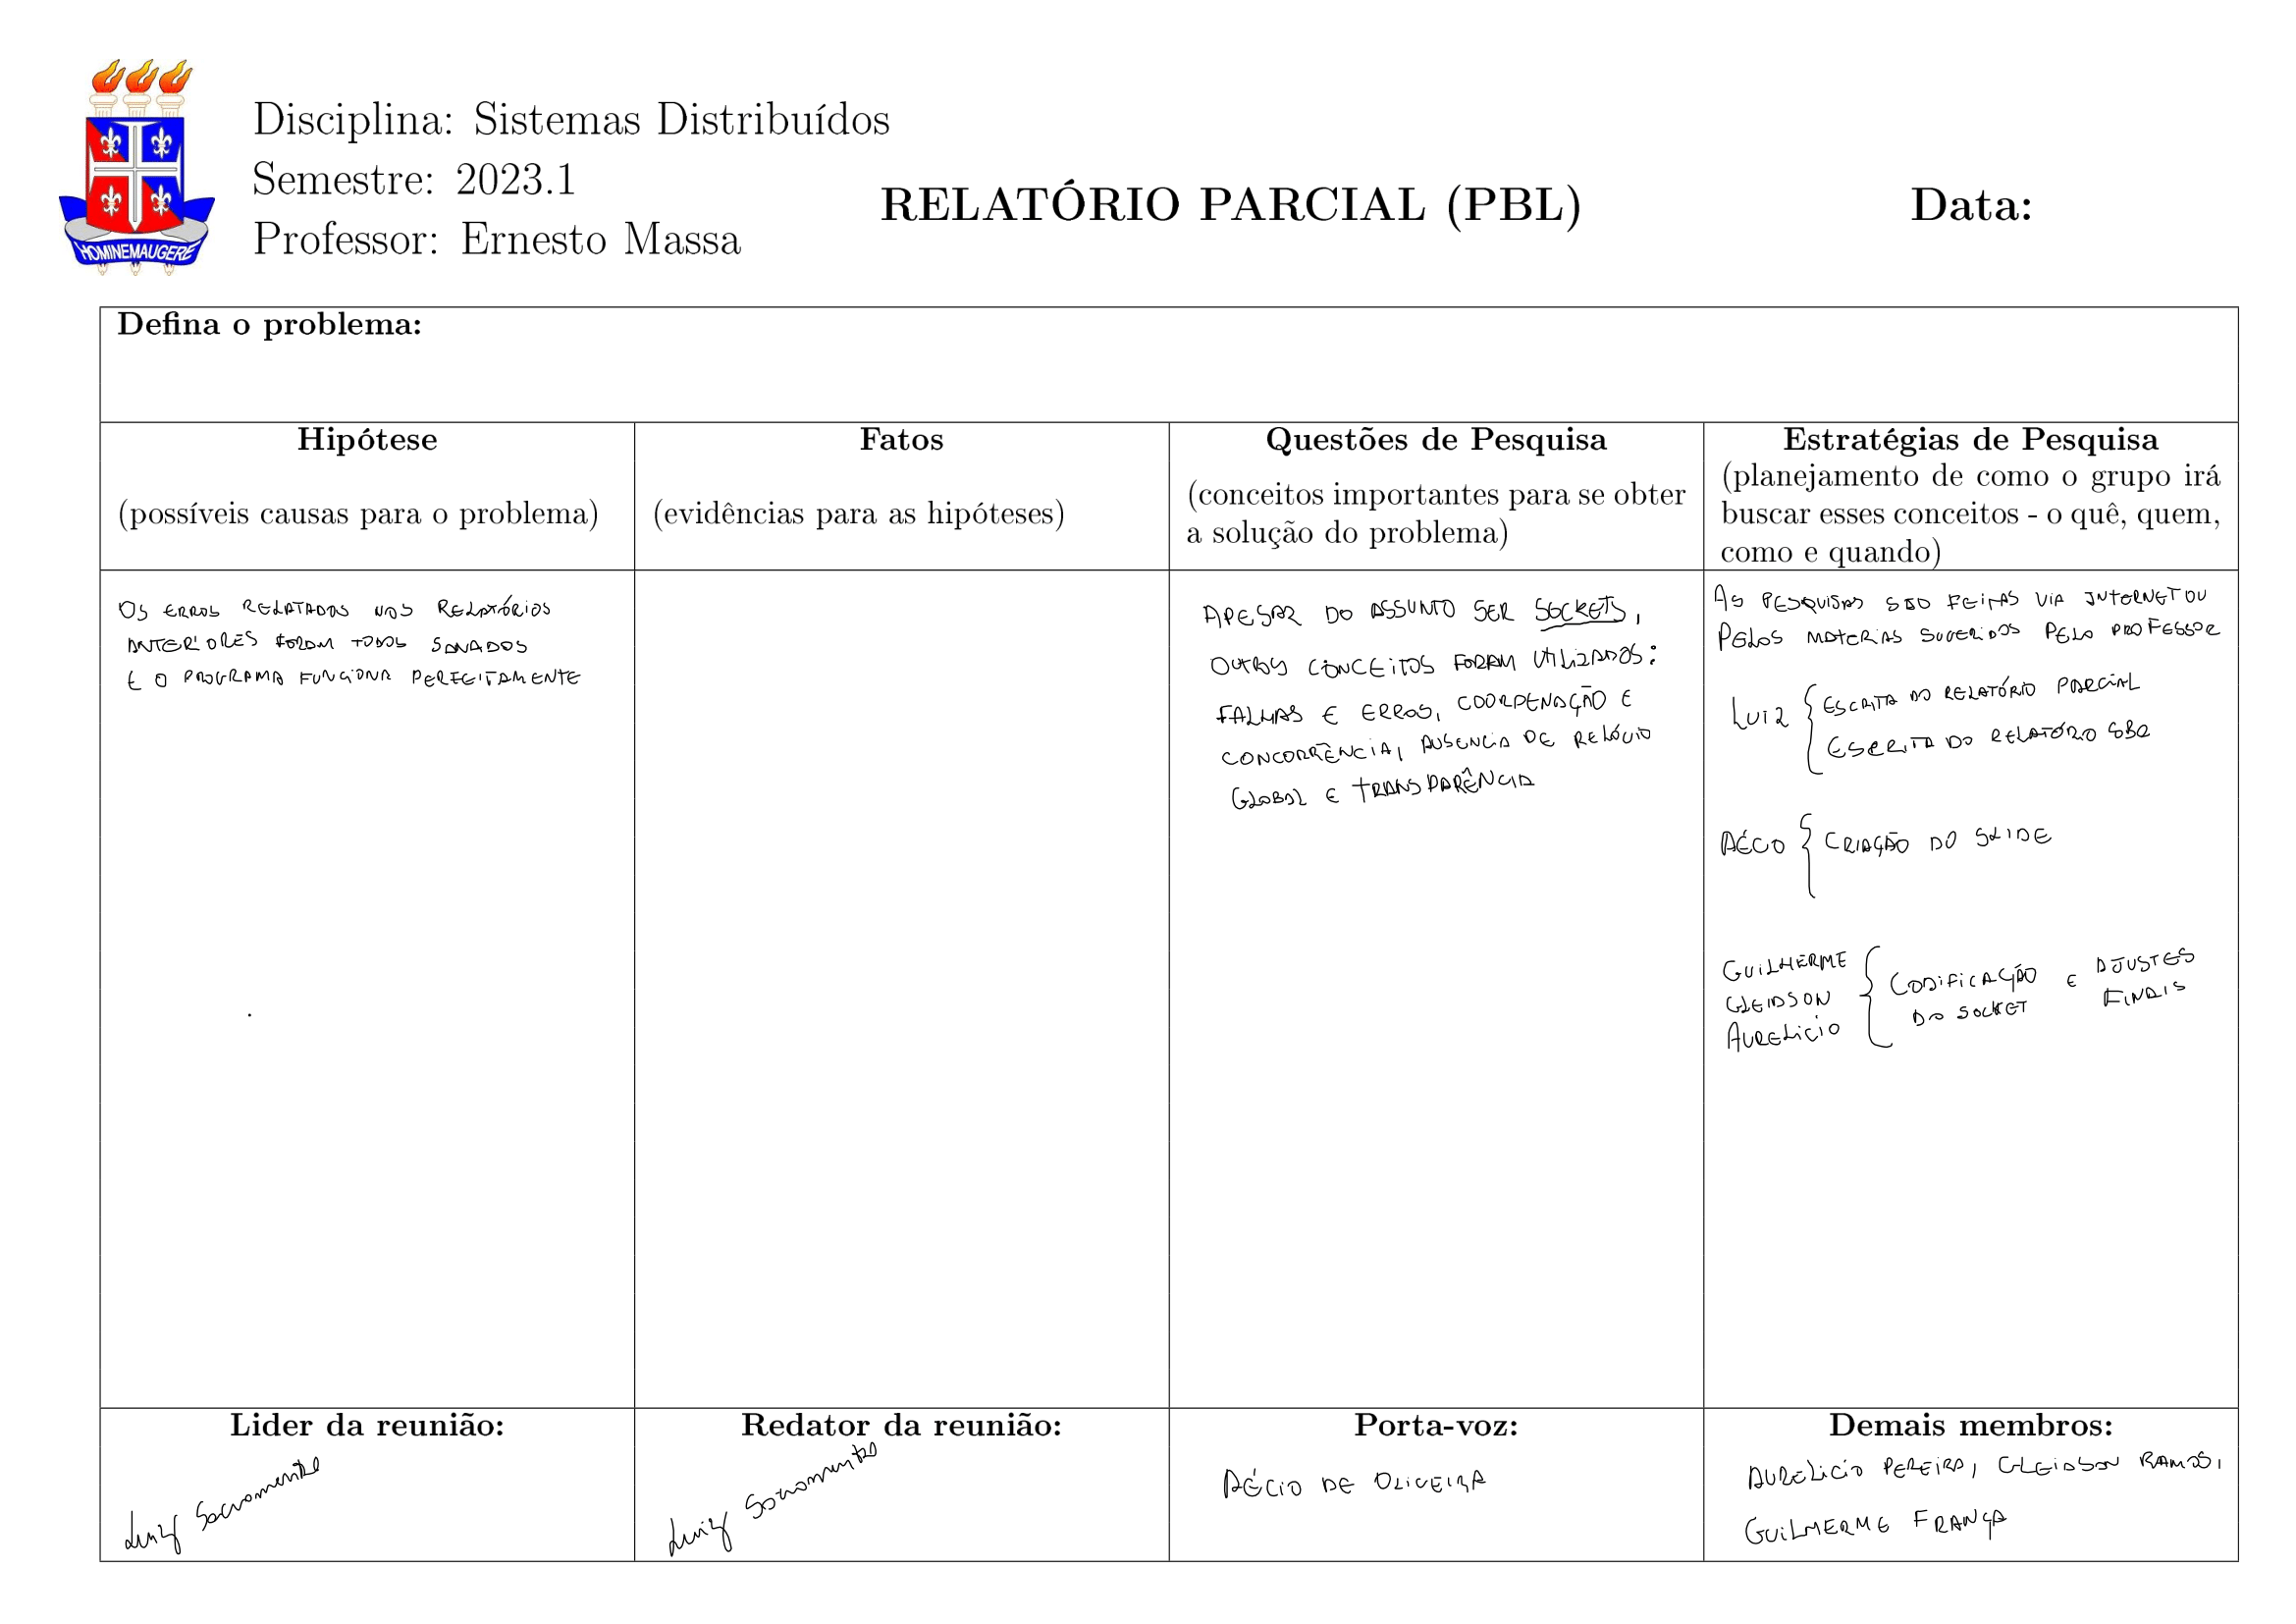 HOMINEMAUGERE
Disciplina: Sistemas Distribuídos
Semestre: 2023.1
Professor: Ernesto Massa
RELATÓRIO PARCIAL (PBL)
Data:
Defina o problema:
Hipótese
(possíveis causas para o problema)
Fatos
(evidências para as hipóteses)
Questões de Pesquisa
(conceitos importantes para se obter
a solução do problema)
Estratégias de Pesquisa
(planejamento de como o grupo irá
buscar esses conceitos - o quê, quem,
como e quando)
OS ERROS RELATADOS NOS RELATÓRIOS
ANTERIORES FORAM TODOS SANADOS
E O PROGRAMA FUNCIONA PERFEITAMENTE
APESAR DO ASSUNTO SER SOCKETS,
OUTROS CONCEITOS FORAM UTILIZADOS:
FALHAS E ERROS, COORDENAÇÃO E
CONCORRÊNCIA, AUSENCIA DE RELÓGIO
GLOBAL E TRANSPARÊNCIA
AS PESQUISAS SÃO FEITAS VIA INTERNET OU
PELOS MATERIAS SUGERIDOS PELO PROFESSOR
LUIZ { ESCRITA DO RELATÓRIO PARCIAL
ESCRITA DO RELATÓRIO SBC
AÉCIO { CRIAÇÃO DO SLIDE
GUILHERME
GLEIDSON
AURELICIO
{ CODIFICAÇÃO E AJUSTES
DO SOCKET FINAIS
Lider da reunião:
Luiz Sacramento
Redator da reunião:
Luiz Sacramento
Porta-voz:
AÉCIO DE OLIVEIRA
Demais membros:
AURELICIO PEREIRA, GLEIDSON RAMOS,
GUILHERME FRANÇA